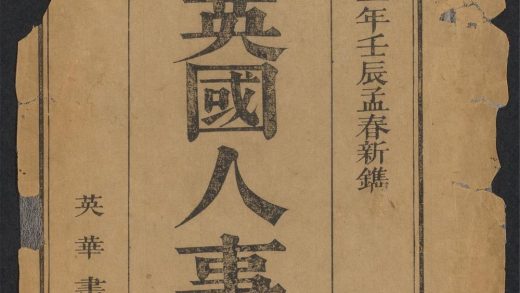 年壬辰孟春新鐫
英國人事
英華書